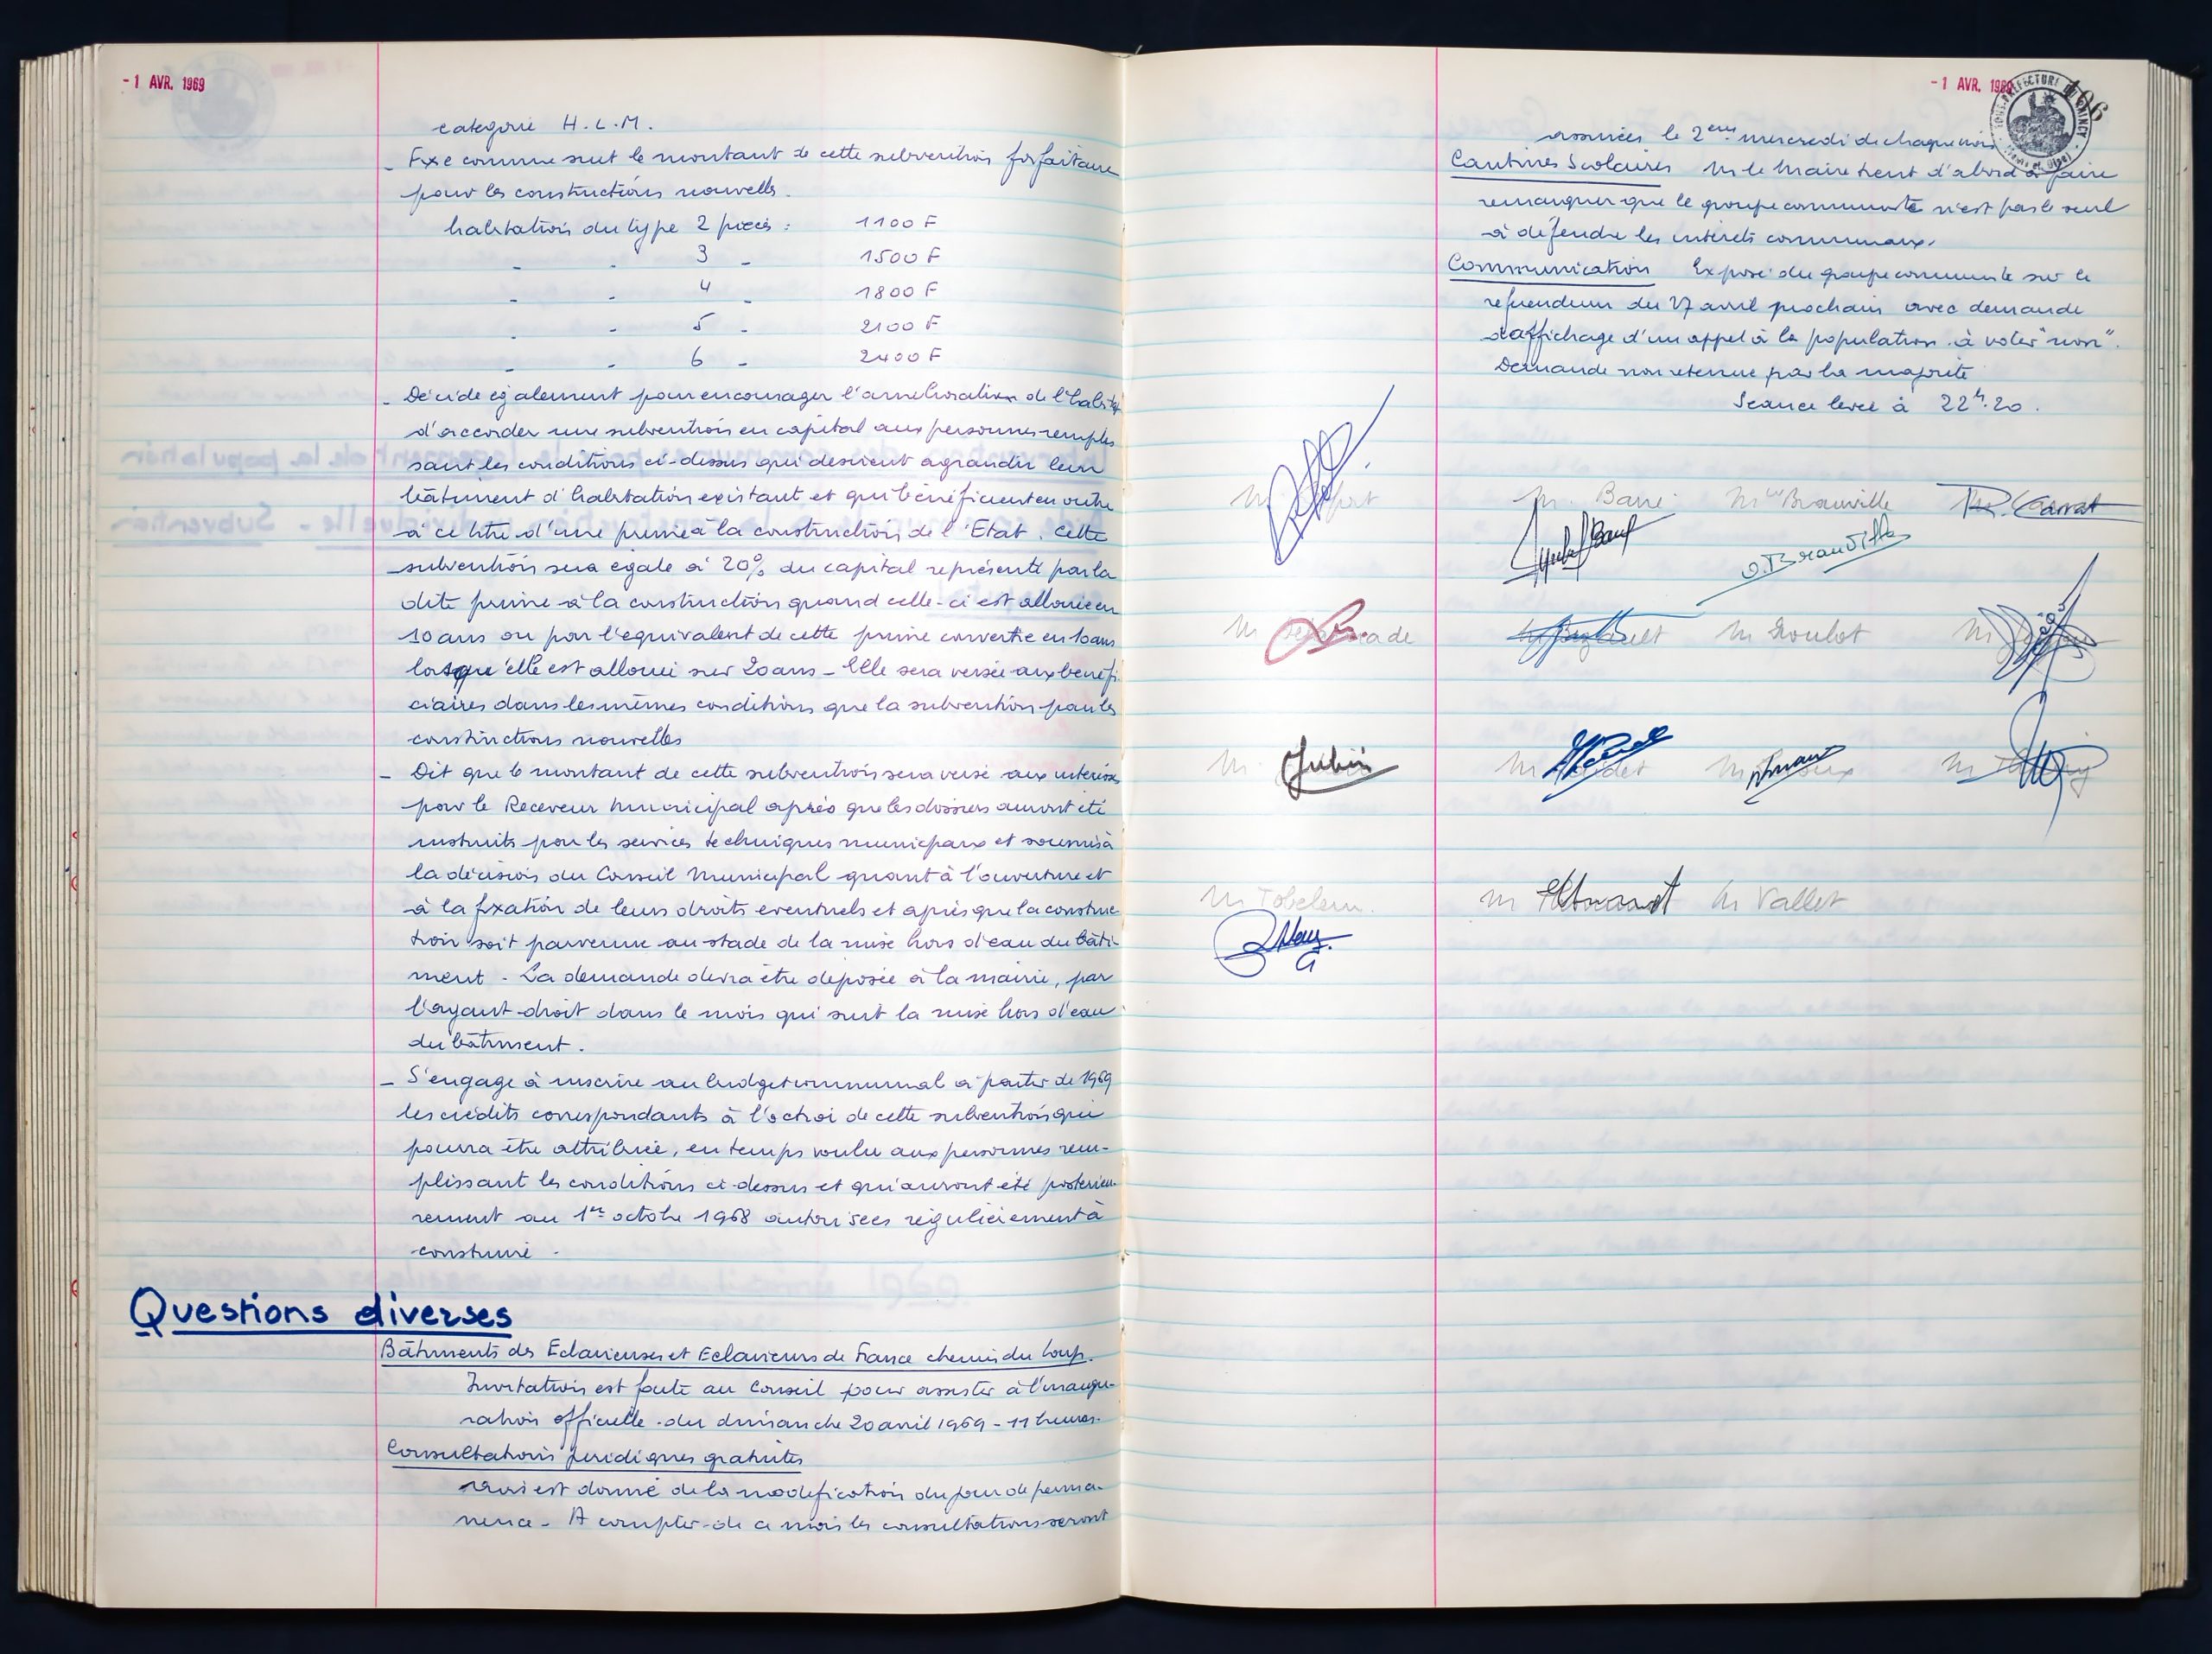 - 1 AVR. 1969
categorie H.L.M.
- Fixe comme suit le montant de cette subvention forfaitaire
pour les constructions nouvelles.
habitation du type 2 pièces : 1100 F
- - 3 - 1500 F
- - 4 - 1800 F
- - 5 - 2100 F
- - 6 - 2400 F
- Décide également pour encourager l'amelioration de l'habitat
d'accorder une subvention en capital aux personnes remplis
sant les conditions ci-dessus qui desirent agrandir leur
bâtiment d'habitation existant et qui bénéficient en outre
à ce titre d'une prime à la construction de l'Etat. Cette
subvention sera égale à 20% du capital représenté par la
dite prime à la construction quand celle-ci est allouée en
10 ans ou par l'équivalent de cette prime convertie en 10 ans
lorsqu'elle est allouée sur 20 ans - Elle sera versée aux bénéfi
ciaires dans les mêmes conditions que la subvention pour les
constructions nouvelles
- Dit que le montant de cette subvention sera versé aux intéressés
par le Receveur Municipal après que les dossiers auront été
instruits par les services techniques municipaux et soumis à
la décision du Conseil Municipal quant à l'ouverture et
à la fixation de leurs droits eventuels et après que la construc
tion soit parvenue au stade de la mise hors d'eau du bâti-
ment - La demande devra être déposée à la mairie, par
l'ayant-droit dans le mois qui suit la mise hors d'eau
du bâtiment.
- S'engage à inscrire au budget communal à partir de 1969
les crédits correspondants à l'octroi de cette subvention qui
pourra être attribuée, en temps voulu aux personnes rem-
plissant les conditions ci-dessus et qui auront été posterieu
rement au 1er octobre 1968 autorisées régulièrement à
construire -
Questions diverses
Bâtiments des Eclaireuses et Eclaireurs de France chemin du Loup.
Invitation est faite au Conseil pour assister à l'inaugu-
ration officielle du dimanche 20 avril 1969 - 11 heures.
Consultations juridiques gratuites
avis est donné de la modification du jour de perma-
nence - A compter de ce mois les consultations seront
- 1 AVR. 1969
106
SOUS-PREFECTURE DU RAINCY
assurées le 2ème mercredi de chaque mois
Cantines Scolaires M le Maire tient d'abord à faire
remarquer que le groupe communiste n'est pas le seul
à défendre les intérêts communaux.
Communication Exposé du groupe communiste sur le
referendum du 27 avril prochain avec demande
d'affichage d'un appel à la population à voter "non".
Demande non retenue par la majorité
Séance levée à 22h.20.
M. Barré Mme Brauville M. Carrat
O. Brauville
M Moulot
M. Jubin
M Tobelem. M M Vallet